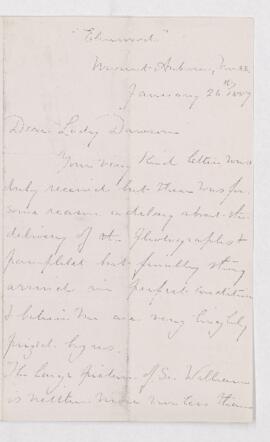 "Elmwood"
Mount Auburn, Mass.
January 26th 1887
Dear Lady Dawson
Your very kind letter was
duly received but there was for
some reason a delay about the
delivery of the Photographs &
pamphlet but finally they
arrived in perfect condition
& are very highly
prized by us.
The large picture of Sir William
is neither more nor less than